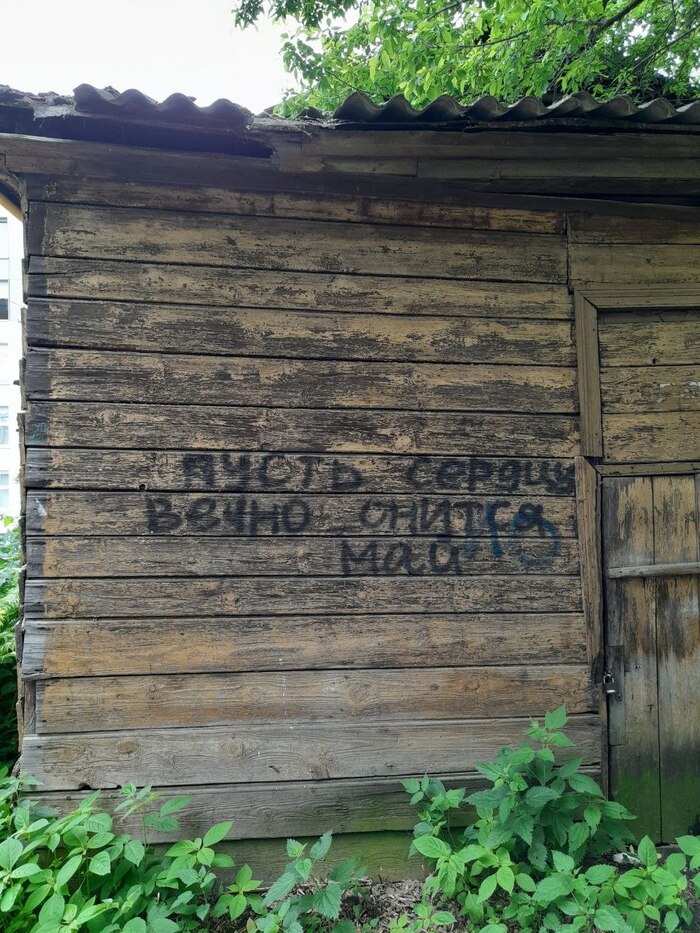 пусть сердцу
вечно снится
май